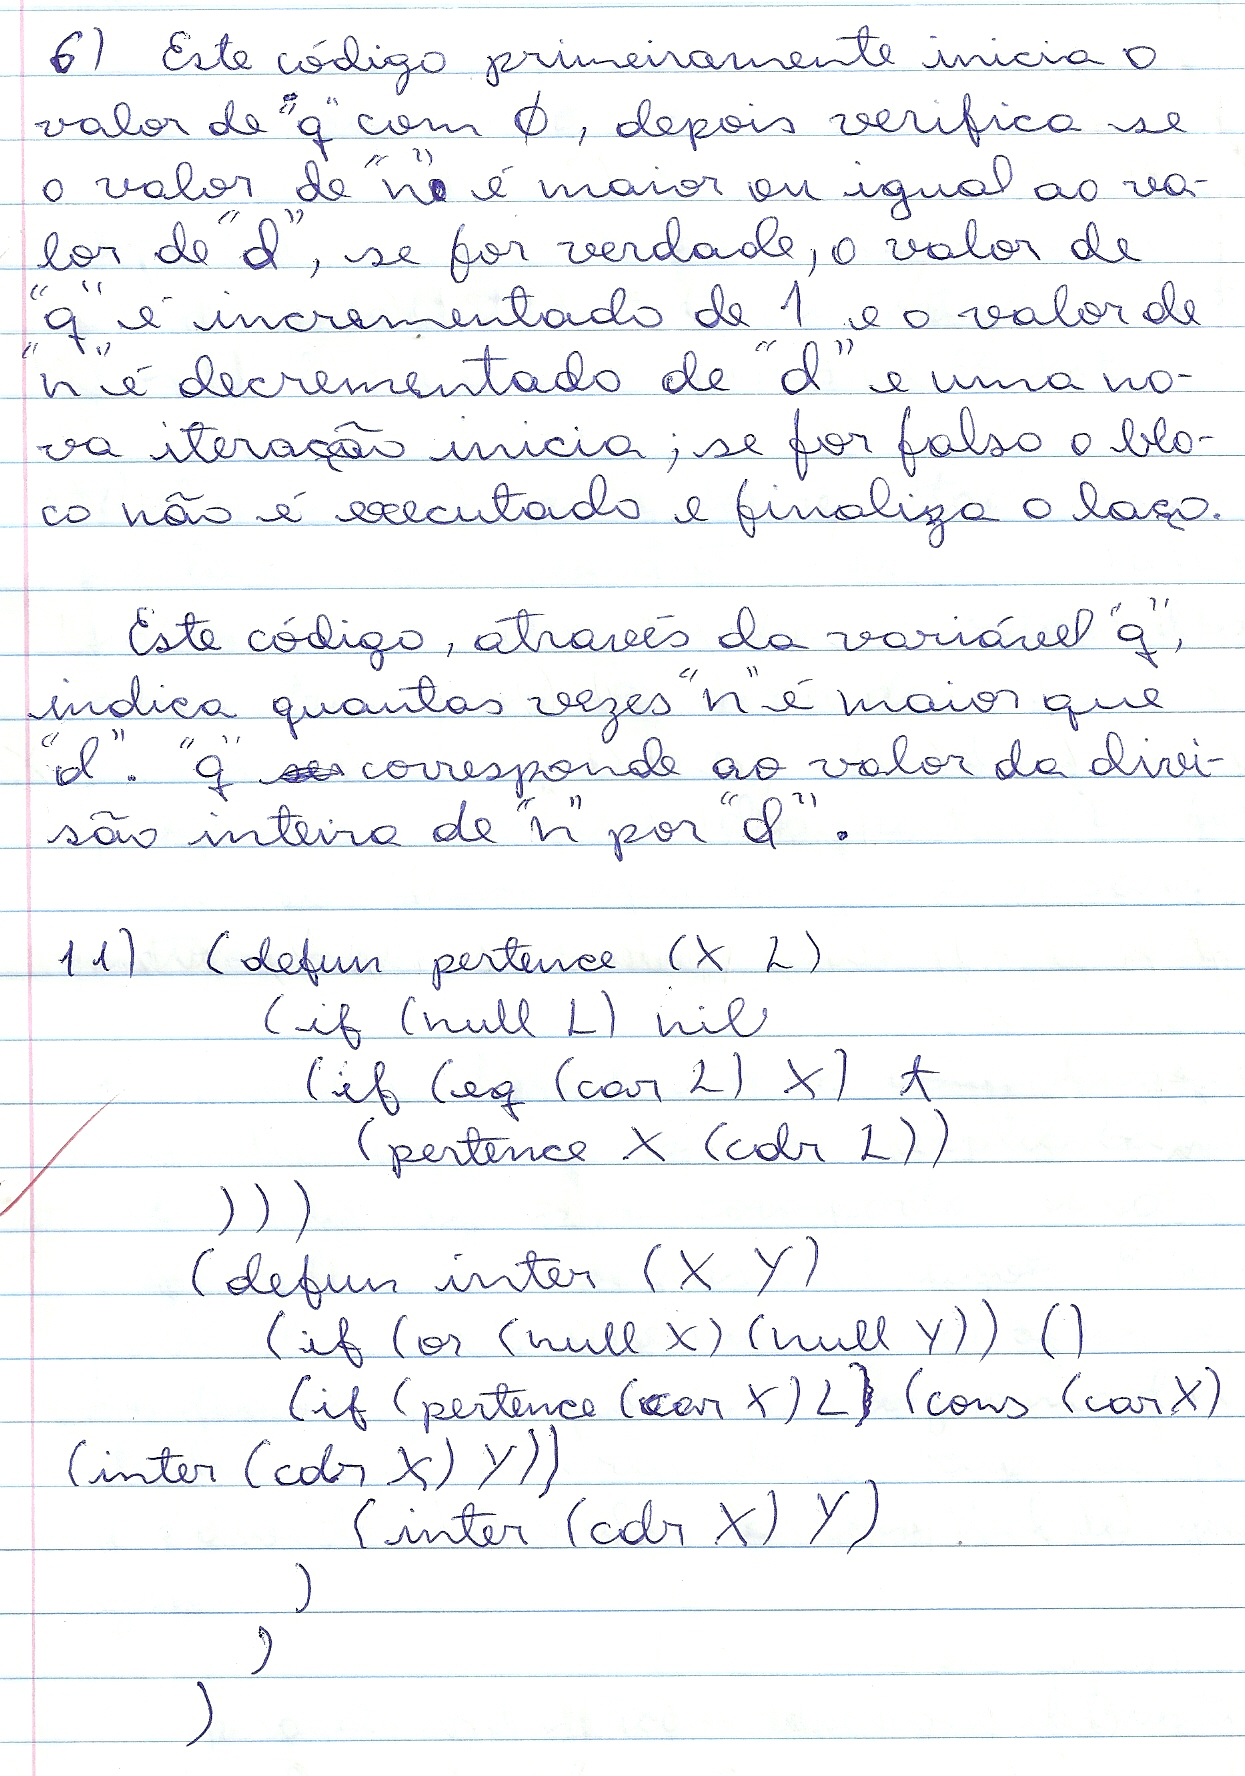 6) Este código primeiramente inicia o
valor de "q" com Ø, depois verifica se
o valor de "n" é maior ou igual ao va-
lor de "d", se for verdade, o valor de
"q" é incrementado de 1 e o valor de
"n" é decrementado de "d" e uma no-
va iteração inicia; se for falso o blo-
co não é executado e finaliza o laço.
Este código, através da variável "q",
indica quantas vezes "n" é maior que
"d". "q" corresponde ao valor da divi-
são inteira de "n" por "d".
11) (defun pertence (X L)
(if (null L) nil
(if (eq (car L) X) t
(pertence X (cdr L))
)))
(defun inter (X Y)
(if (or (null X) (null Y)) ()
(if (pertence (car X) L) (cons (car X)
(inter (cdr X) Y))
(inter (cdr X) Y)
)
)
)